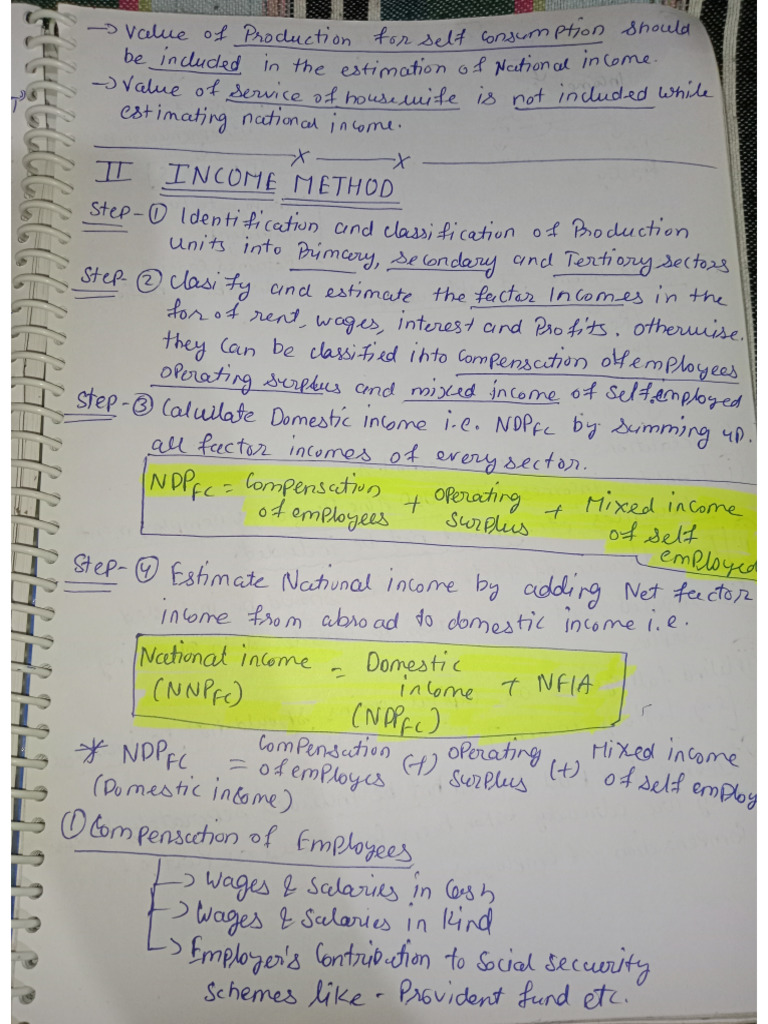 → Value of Production for self consumption should
be included in the estimation of National income.
→ Value of service of housewife is not included while
estimating national income.
x x
II INCOME METHOD
Step-① Identification and classification of Production
units into Primary, Secondary and Tertiory sectors
Step-② Clasify and estimate the factor Incomes in the
for of rent, wages, interest and Profits. otherwise.
they can be classified into Compensation of employees
operating surplus and mixed income of self employed
Step-③ Calculate Domestic income i.e. NDPFC by summing up.
all factor incomes of every sector.
NDPFC = Compensation of employees + Operating surplus + Mixed income of self employed
Step-④ Estimate National income by adding Net factor
income from abroad to domestic income i.e.
National income (NNPFC) = Domestic income (NDPFC) + NFIA
* NDPFC (Domestic income) = Compensation of employes (+) Operating surplus (+) Mixed income of self employ
① Compensation of Employees
→ Wages & Salaries in Cash
→ Wages & Salaries in Kind
→ Employer's Contribution to Social seccurity
schemes like - Provident fund etc.